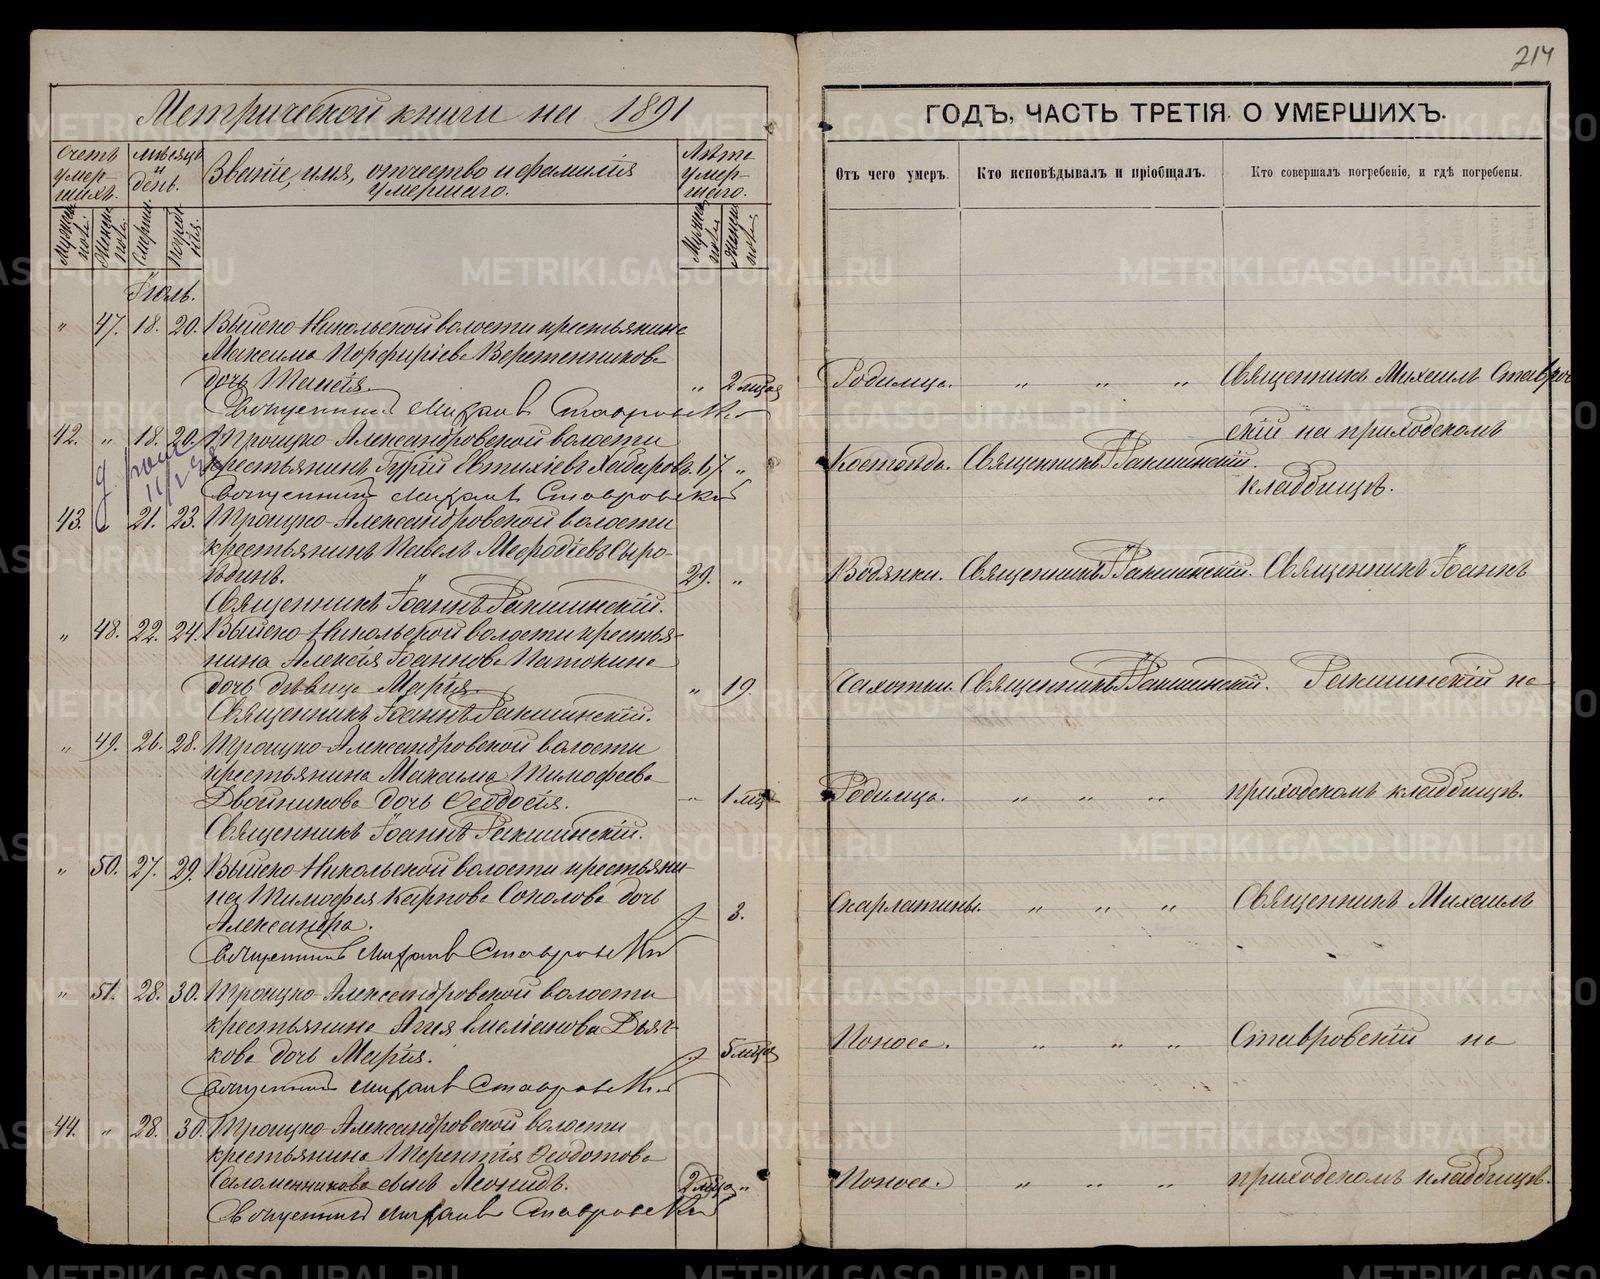 214
Метрической книги на 1891
ГОДЪ, ЧАСТЬ ТРЕТІЯ О УМЕРШИХЪ.
Счетъ умершихъ. Мѣсяцъ и день. Званіе, имя, отчество и фамилія умершаго. Лѣта умершаго.
Отъ чего умеръ. Кто исповѣдывалъ и пріобщалъ. Кто совершалъ погребеніе, и гдѣ погребены.
Смерти.
Іюль.
" 47. 18. 20. Выйско-Никольской волости крестьянина
Максима Порфиріева Веретенникова
дочь Таисія. " 2 мѣсяца Родимца. " " " Священникъ Михаилъ Ставров
Священникъ Михаилъ Ставровскій
скій на приходскомъ
42. " 18. 20. Троицко-Александровской волости
крестьянинъ Гурій Евтихіевъ Хабаровъ. 67. " Костоѣда. Священникъ І Ракшинскій.
Священникъ Михаилъ Ставровскій
кладбищѣ.
43. " 21. 23. Троицко-Александровской волости
крестьянинъ Павелъ Меѳодіевъ Сыро-
29. " Водянки. Священникъ І Ракшинскій. Священникъ Іоаннъ
Священникъ Іоаннъ Ракшинскій.
" 48. 22. 24. Выйско-Никольской волости крестья-
нина Алексія Іоаннова Патокина
дочь дѣвица Марія. " 19. Чахотки. Священникъ І Ракшинскій. Ракшинскій на
Священникъ Іоаннъ Ракшинскій.
" 49. 26. 28. Троицко-Александровской волости
крестьянина Максима Тимофеева
Двойникова дочь Ѳеодосія. " 1 мѣс. Родимца. " " " приходскомъ кладбищѣ.
Священникъ Іоаннъ Ракшинскій.
" 50. 27. 29. Выйско-Никольской волости крестьяни-
на Тимофея Карпова Соколова дочь
Александра. 3. Скарлатины. " " " Священникъ Михаилъ
Священникъ Михаилъ Ставровскій
" 51. 28. 30. Троицко-Александровской волости
крестьянина Аггея Емеліанова Дьяч-
кова дочь Марія. 5 мѣсяц Поноса. " " " Ставровскій на
Священникъ Михаилъ Ставровскій
44. " 28. 30. Троицко-Александровской волости
крестьянина Терентія Ѳеодотова
Саломенникова сынъ Леонидъ. 2 мѣсяца " Поноса. " " " приходскомъ кладбищѣ.
Священникъ Михаилъ Ставровскій
METRIKI.GASO-URAL.RU